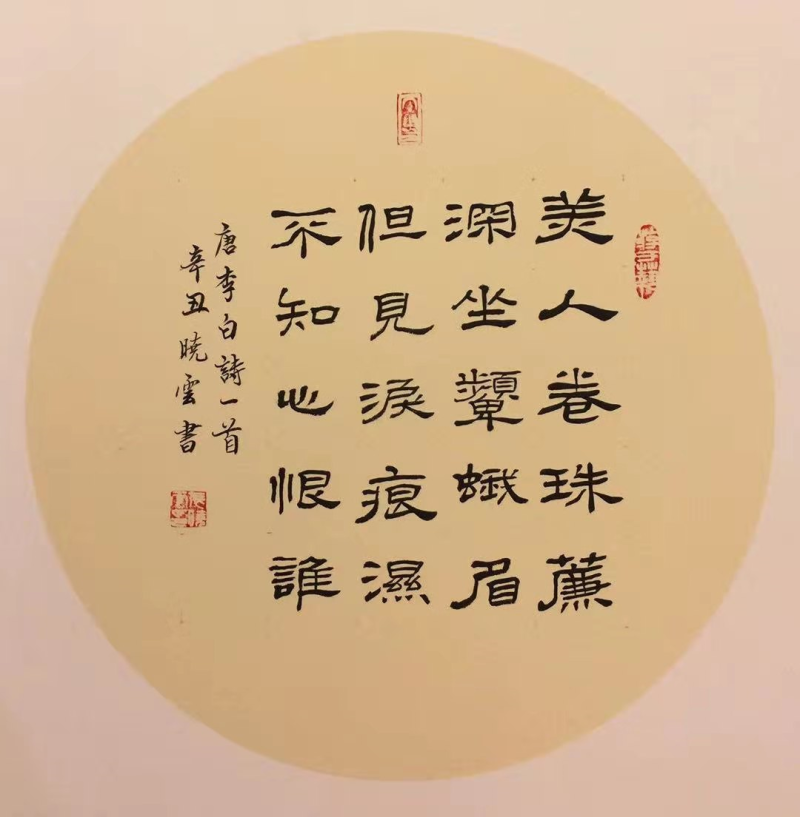 美人卷珠薕
深坐顰蛾眉
但見淚痕濕
不知心恨誰
唐李白詩一首
辛丑曉雲書